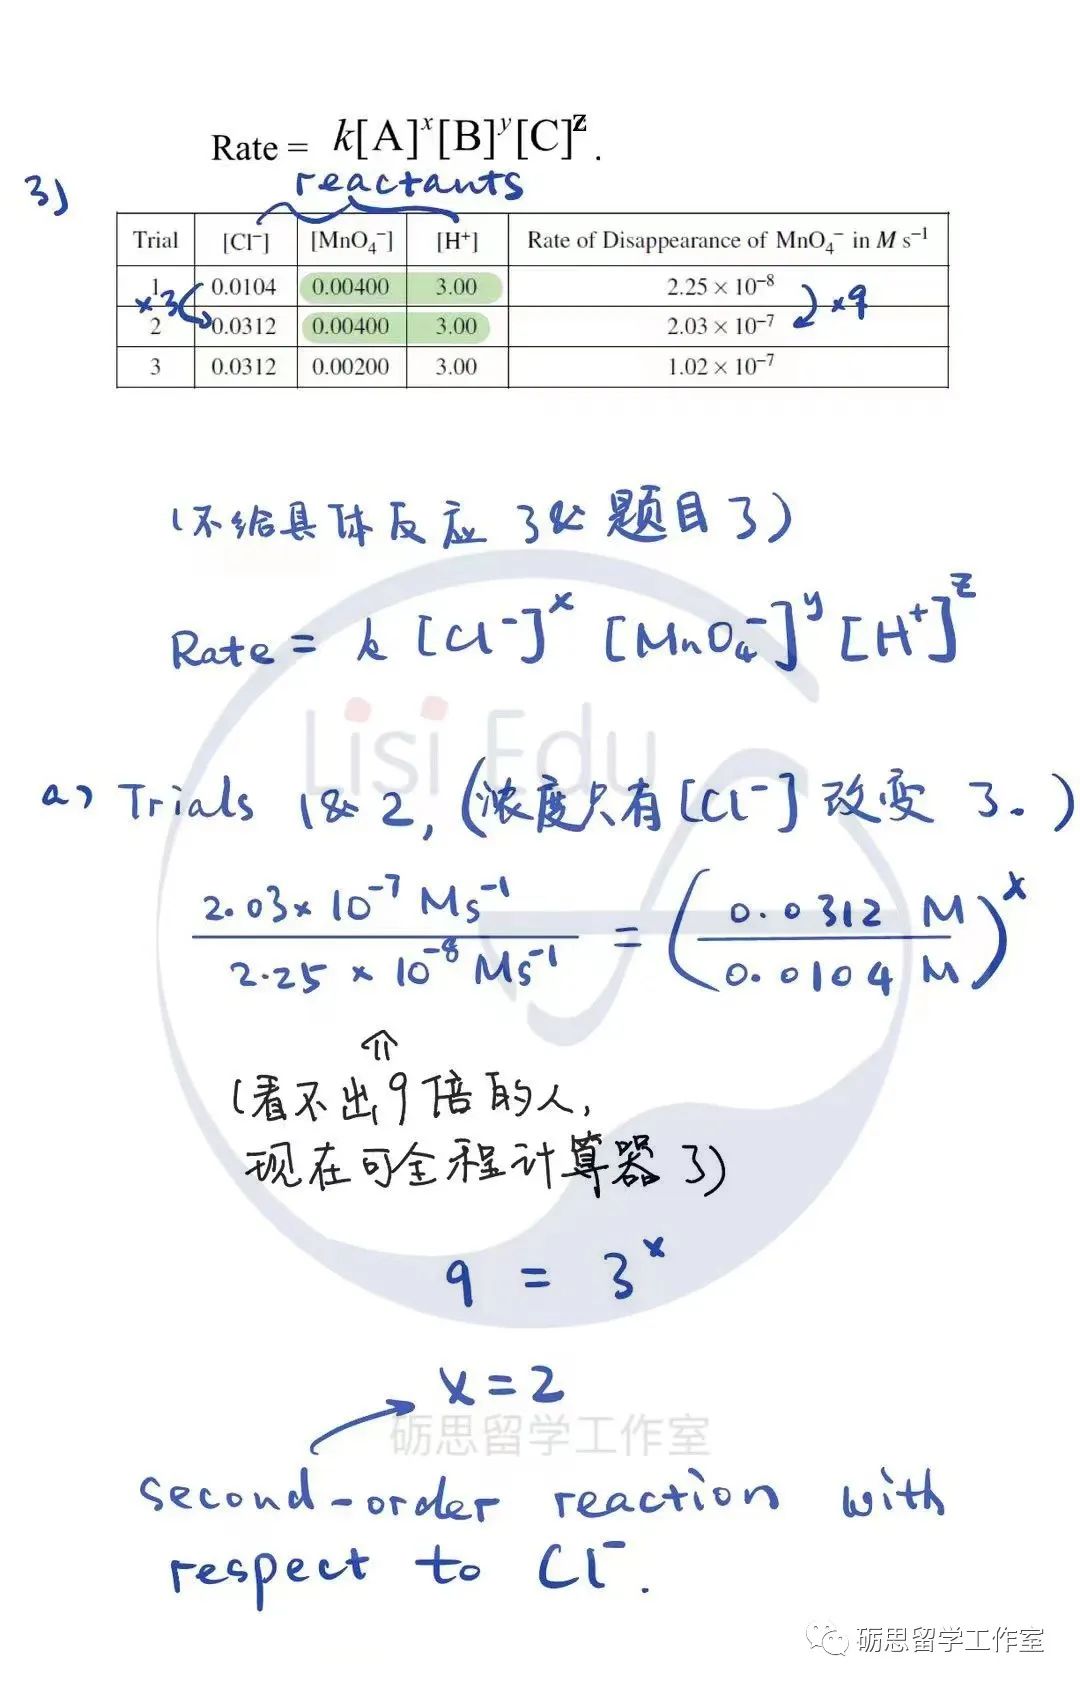 Rate = k[A]ˣ[B]ʸ[C]ᶻ.
reactants
3)
Trial [Cl⁻] [MnO₄⁻] [H⁺] Rate of Disappearance of MnO₄⁻ in M s⁻¹
1 0.0104 0.00400 3.00 2.25 × 10⁻⁸
×3 ×9
2 0.0312 0.00400 3.00 2.03 × 10⁻⁷
3 0.0312 0.00200 3.00 1.02 × 10⁻⁷
(不给具体反应了&题目了)
Rate = k [Cl⁻]ˣ [MnO₄⁻]ʸ [H⁺]ᶻ
Lisi Edu
a) Trials 1&2, (浓度只有[Cl⁻]改变了。)
2.03×10⁻⁷ Ms⁻¹ / 2.25×10⁻⁸ Ms⁻¹ = (0.0312 M / 0.0104 M)ˣ
⇑
(看不出9倍的人,
现在可全程计算器了)
9 = 3ˣ
x=2
砺思留学工作室
second-order reaction with
respect to Cl⁻.
砺思留学工作室